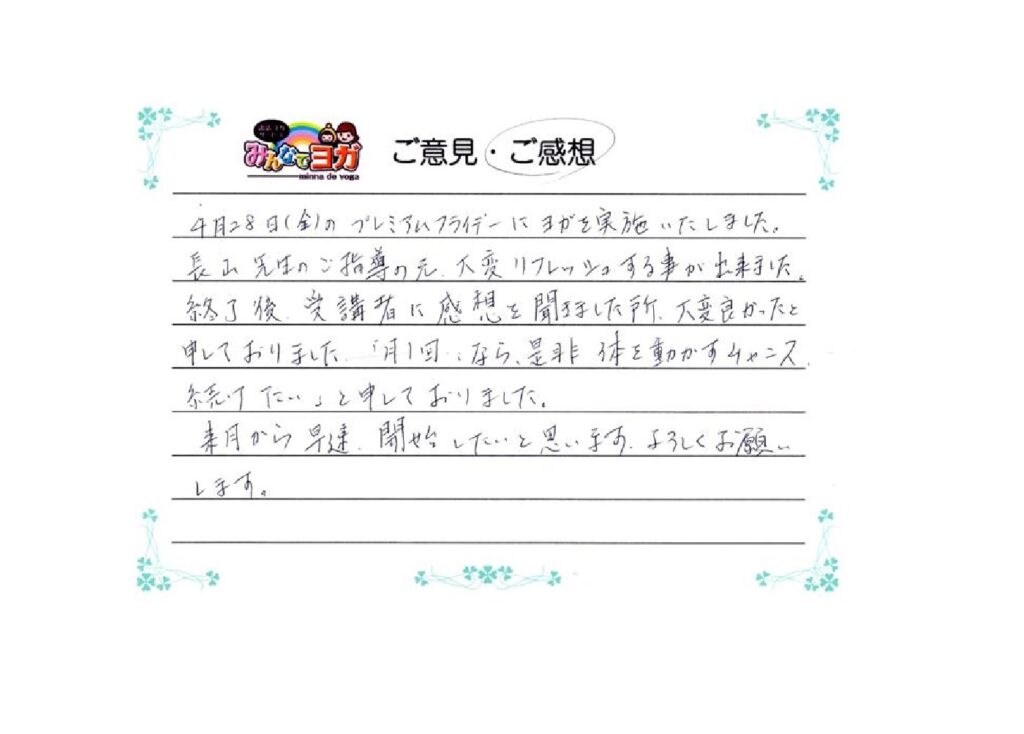 みんなでヨガ
minna de yoga
ご意見・ご感想
4月28日(金)の プレミアムフライデーに ヨガを実施いたしました。
長山先生のご指導の元、大変リフレッシュする事が出来ました。
終了後、受講者に感想を聞きました所、大変良かったと
申しておりました。「月1回‥なら、是非 体を動かすチャンス、
続けたい」と申しておりました。
来月から早速、開始したいと思います。よろしくお願い
します。